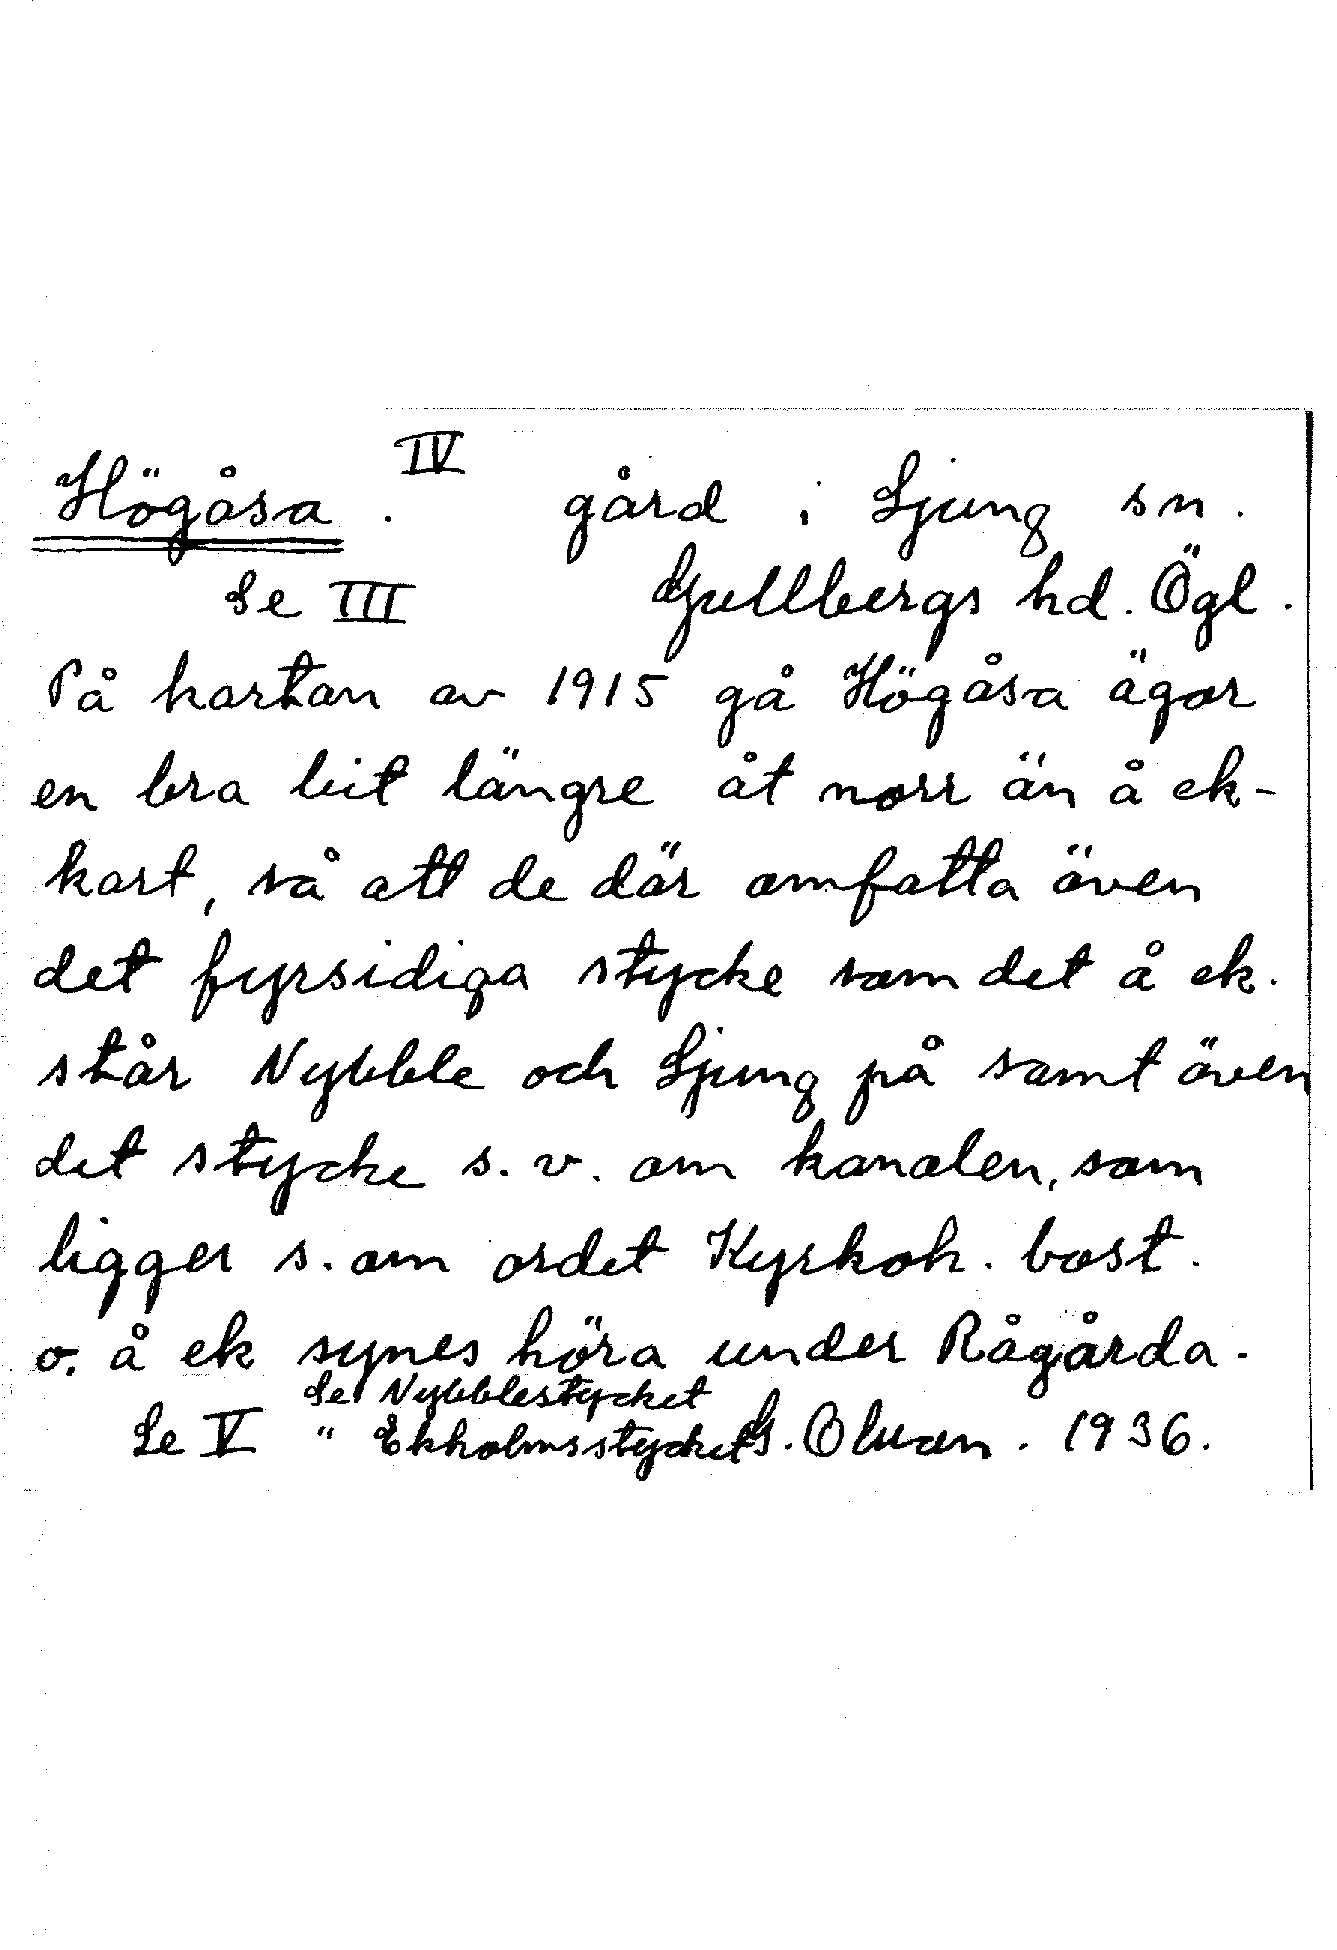 IV
Högåsa. gård i Ljung sn.
Se III Gullbergs hd. Ögl.
På kartan av 1915 gå Högåsa ägor
en bra bit längre åt norr än å ek-
kart, så att de där omfatta även
det fyrsidiga stycke som det å ek.
står Nybble och Ljung på samt även
det stycke s. v. om kanalen, som
ligger s. om ordet Kyrkoh. bost.
o. å ek synes höra under Rågårda.
Se Nybblestycket
Se V " Ekholmsstycket G. Olwan. 1936.